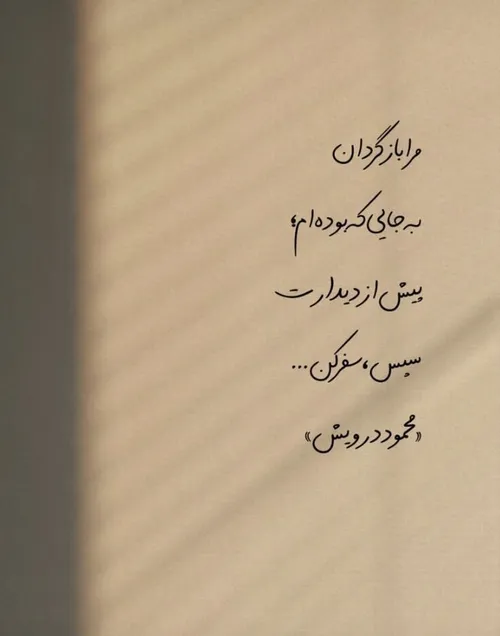 مرا بازگردان
به جایی که بوده‌ام؛
پیش از دیدارت
سپس، سفر کن...
«محمود درویش»